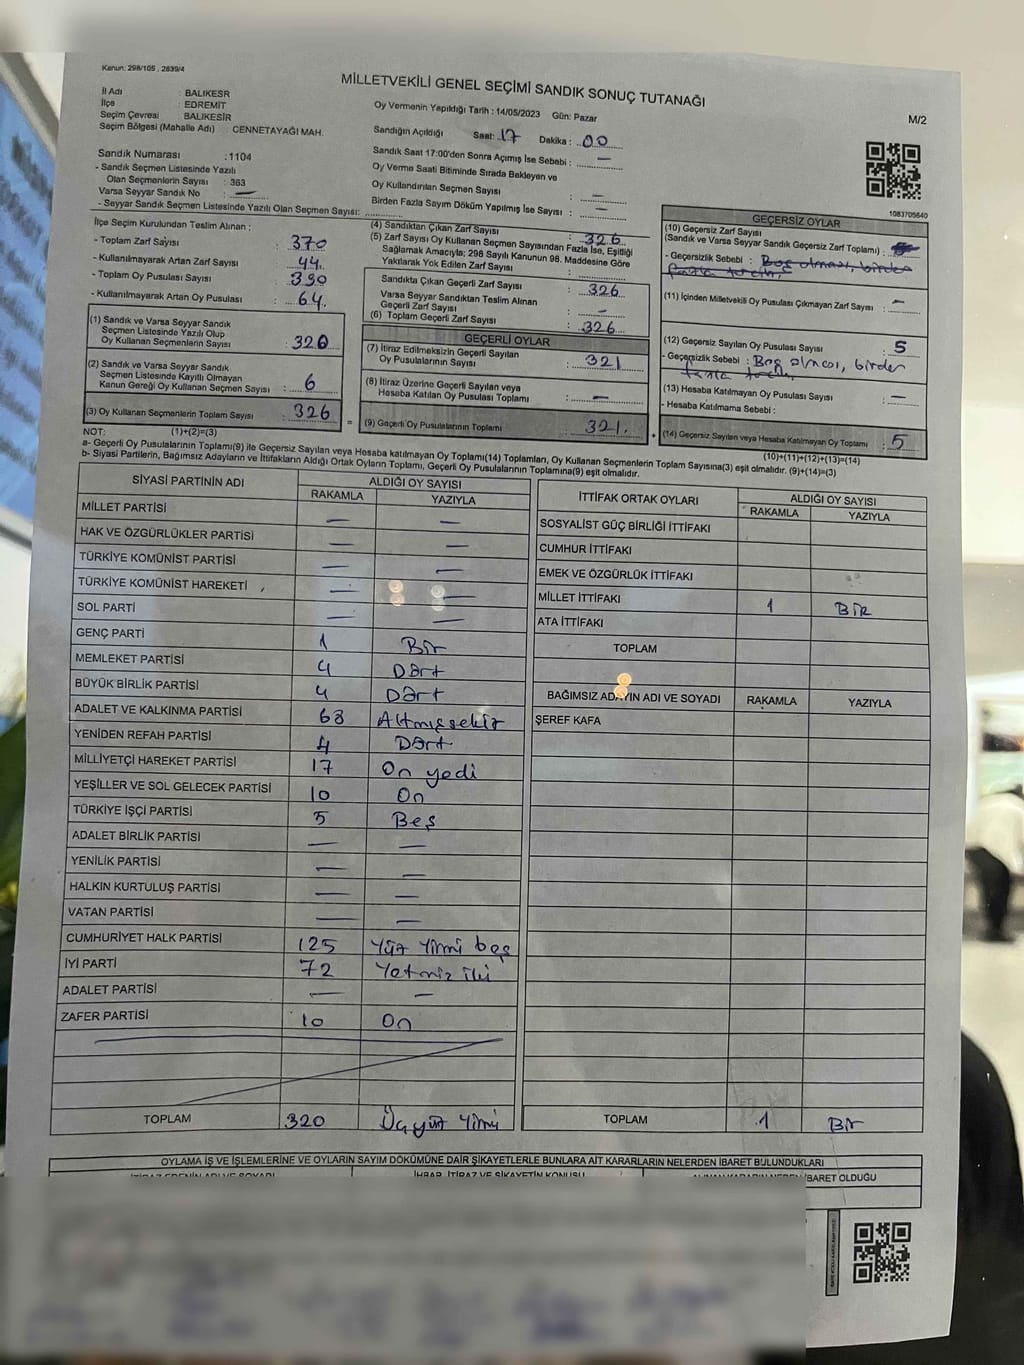 Kanun: 298/105 , 2839/4
MİLLETVEKİLİ GENEL SEÇİMİ SANDIK SONUÇ TUTANAĞI
M/2
İl Adı : BALIKESR
İlçe : EDREMİT
Seçim Çevresi BALIKESİR
Seçim Bölgesi (Mahalle Adı) : CENNETAYAĞI MAH.
Sandık Numarası : 1104
- Sandık Seçmen Listesinde Yazılı
Olan Seçmenlerin Sayısı : 363
Varsa Seyyar Sandık No —
- Seyyar Sandık Seçmen Listesinde Yazılı Olan Seçmen Sayısı:
Oy Vermenin Yapıldığı Tarih : 14/05/2023 Gün: Pazar
Sandığın Açıldığı Saat: 17 Dakika : 00
Sandık Saat 17:00'den Sonra Açımış İse Sebebi : —
Oy Verme Saati Bitiminde Sırada Bekleyen ve
Oy Kullandırılan Seçmen Sayısı : —
Birden Fazla Sayım Döküm Yapılmış İse Sayısı : —
1083705640
İlçe Seçim Kurulundan Teslim Alınan :
- Toplam Zarf Sayısı : 370
- Kullanılmayarak Artan Zarf Sayısı : 44
- Toplam Oy Pusulası Sayısı : 390
- Kullanılmayarak Artan Oy Pusulası : 64
(1) Sandık ve Varsa Seyyar Sandık
Seçmen Listesinde Yazılı Olup
Oy Kullanan Seçmenlerin Sayısı : 320
(2) Sandık ve Varsa Seyyar Sandık
Seçmen Listesinde Kayıtlı Olmayan
Kanun Gereği Oy Kullanan Seçmen Sayısı : 6
(3) Oy Kullanan Seçmenlerin Toplam Sayısı : 326
(4) Sandıktan Çıkan Zarf Sayısı : 326
(5) Zarf Sayısı Oy Kullanan Seçmen Sayısından Fazla İse, Eşitliği
Sağlamak Amacıyla; 298 Sayılı Kanunun 98. Maddesine Göre
Yakılarak Yok Edilen Zarf Sayısı :
Sandıkta Çıkan Geçerli Zarf Sayısı : 326
Varsa Seyyar Sandıktan Teslim Alınan
Geçerli Zarf Sayısı : —
(6) Toplam Geçerli Zarf Sayısı : 326
GEÇERLİ OYLAR
(7) İtiraz Edilmeksizin Geçerli Sayılan
Oy Pusulalarının Sayısı : 321
(8) İtiraz Üzerine Geçerli Sayılan veya
Hesaba Katılan Oy Pusulası Toplamı : —
= (9) Geçerli Oy Pusulalarının Toplamı 321.
GEÇERSİZ OYLAR
(10) Geçersiz Zarf Sayısı
(Sandık ve Varsa Seyyar Sandık Geçersiz Zarf Toplamı) :
- Geçersizlik Sebebi : Boş olması, birden
fazla tercih,
(11) İçinden Milletvekili Oy Pusulası Çıkmayan Zarf Sayısı : —
(12) Geçersiz Sayılan Oy Pusulası Sayısı : 5
- Geçersizlik Sebebi : Boş olması, birden
fazla tercih,
(13) Hesaba Katılmayan Oy Pusulası Sayısı : —
- Hesaba Katılmama Sebebi :
(14) Geçersiz Sayılan veya Hesaba Katılmayan Oy Toplamı : 5
NOT: (1)+(2)=(3)
(10)+(11)+(12)+(13)=(14)
a- Geçerli Oy Pusulalarının Toplamı(9) ile Geçersiz Sayılan veya Hesaba katılmayan Oy Toplamı(14) Toplamları, Oy Kullanan Seçmenlerin Toplam Sayısına(3) eşit olmalıdır. (9)+(14)=(3)
b- Siyasi Partilerin, Bağımsız Adayların ve İttifakların Aldığı Ortak Oyların Toplamı, Geçerli Oy Pusulalarının Toplamına(9) eşit olmalıdır.
SİYASİ PARTİNİN ADI ALDIĞI OY SAYISI
RAKAMLA YAZIYLA
MİLLET PARTİSİ — —
HAK VE ÖZGÜRLÜKLER PARTİSİ — —
TÜRKİYE KOMÜNİST PARTİSİ — —
TÜRKİYE KOMÜNİST HAREKETİ — —
SOL PARTİ — —
GENÇ PARTİ 1 Bir
MEMLEKET PARTİSİ 4 Dört
BÜYÜK BİRLİK PARTİSİ 4 Dört
ADALET VE KALKINMA PARTİSİ 68 Altmışsekiz
YENİDEN REFAH PARTİSİ 4 Dört
MİLLİYETÇİ HAREKET PARTİSİ 17 On yedi
YEŞİLLER VE SOL GELECEK PARTİSİ 10 On
TÜRKİYE İŞÇİ PARTİSİ 5 Beş
ADALET BİRLİK PARTİSİ — —
YENİLİK PARTİSİ — —
HALKIN KURTULUŞ PARTİSİ — —
VATAN PARTİSİ — —
CUMHURİYET HALK PARTİSİ 125 Yüz Yirmi beş
İYİ PARTİ 72 Yetmiz iki
ADALET PARTİSİ — —
ZAFER PARTİSİ 10 On
TOPLAM 320 Üçyüz Yirmi
İTTİFAK ORTAK OYLARI ALDIĞI OY SAYISI
RAKAMLA YAZIYLA
SOSYALİST GÜÇ BİRLİĞİ İTTİFAKI
CUMHUR İTTİFAKI
EMEK VE ÖZGÜRLÜK İTTİFAKI
MİLLET İTTİFAKI 1 BİR
ATA İTTİFAKI
TOPLAM
BAĞIMSIZ ADAYIN ADI VE SOYADI RAKAMLA YAZIYLA
ŞEREF KAFA
TOPLAM 1 Bir
OYLAMA İŞ VE İŞLEMLERİNE VE OYLARIN SAYIM DÖKÜMÜNE DAİR ŞİKAYETLERLE BUNLARA AİT KARARLARIN NELERDEN İBARET BULUNDUKLARI
İTİRAZ EDENİN ADI VE SOYADI İHBAR, İTİRAZ VE ŞİKAYETİN KONUSU İBARET OLDUĞU